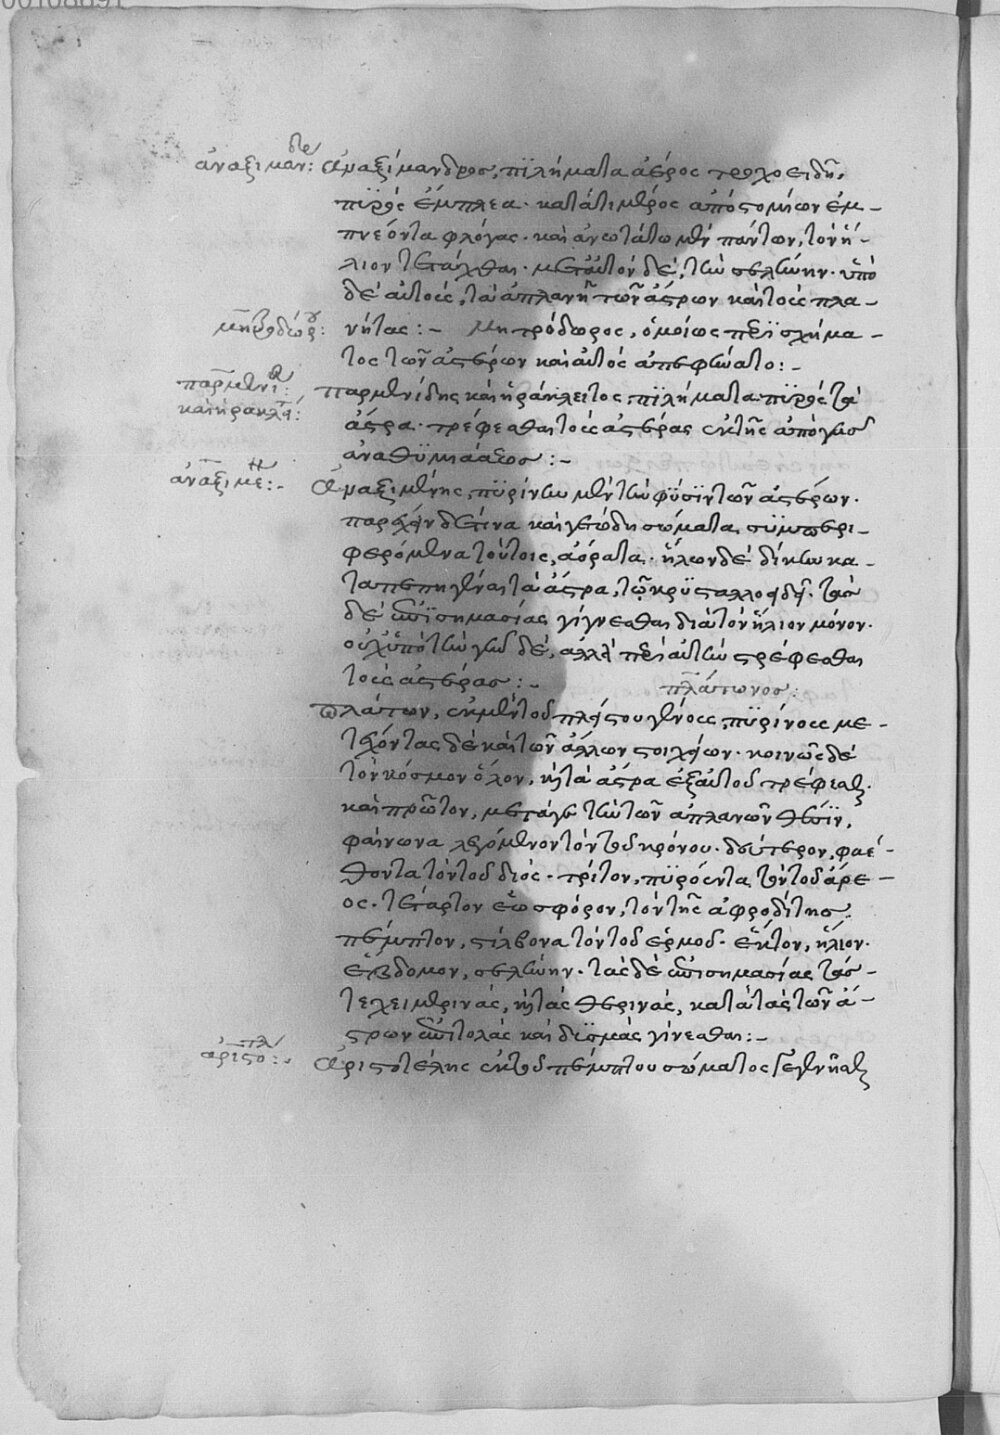 ἀναξιμάνδρ: Ἀναξίμανδρος, πϊλήματα ἀέρος τροχοειδῆ,
πϋρὸς ἔμπλεα. κατά τι μέρος ἀπὸ στομίων ἐμ-
πνέοντα φλόγας. καὶ ἀνωτάτω μὲν πάντων, τὸν ἥ-
λιον τετάχθαι. μετ' αὐτὸν δὲ, τὴν σελήνην. ὑπὸ
δὲ αὐτοὺς, τὰ ἀπλανῆ τῶν ἄστρων καὶ τοὺς πλα-
μητροδώρου: νήτας:- Μητρόδωρος, ὁμοίως περὶ σχήμα-
τος τῶν ἀστέρων καὶ αὐτὸς ἀπεφήνατο:-
παρμενίδ: Παρμενίδης καὶ ἡράκλειτος, πϊλήματα πϋρὸς τὰ
καὶ ἡρακλεί: ἄστρα. τρέφεσθαι τοὺς ἀστέρας ἐκ τῆς ἀπὸ γῆς
ἀναθϋμιάσεως:-
ἀναξιμένη:- Ἀναξιμένης, πϋρίνην μὲν τὴν φύσϊν τῶν ἀστέρων.
παρέχειν δέ τινα καὶ γεώδη σώματα συμπερι-
φερόμενα τούτοις, ἀόρατα. ἥλων δὲ δίκην κα-
ταπεπηγέναι τὰ ἄστρα, τῷ κρϋσταλλοειδεῖ. τὰς
δὲ ἐπϊσημασίας γίγνεσθαι διὰ τὸν ἥλιον μόνον.
οὐχ ὑπὸ τὴν γῆν δὲ, ἀλλὰ περὶ αὐτὴν στρέφεσθαι
τοὺς ἀστέρας:- πλάτωνος:
Πλάτων, ἐκ μὲν τοῦ πλείστου γένους, πϋρίνους με-
τέχοντας δὲ καὶ τῶν ἄλλων στοιχείων. κοινῶς δὲ
τὸν κόσμον ὅλον, καὶ τὰ ἄστρα ἐξ αὐτοῦ τρέφεσθαι.
καὶ πρῶτον, μετά γε τὴν τῶν ἀπλανῶν θέσϊν,
φαίνωνα λεγόμενον τὸν τοῦ κρόνου. δεύτερον, φαέ-
θοντα τὸν τοῦ διός. τρίτον, πϋρόεντα τὸν τοῦ ἄρε-
ος. τέταρτον ἑωσφόρον, τὸν τῆς ἀφροδίτης.
πέμπτον, στίλβονα τὸν τοῦ ἑρμοῦ. ἕκτον, ἥλιον.
ἕβδομον, σελήνην. τὰς δὲ ἐπισημασίας τάς-
τε χειμερινὰς, καὶ τὰς θερινὰς, κατὰ τὰς τῶν ἄ-
στρων ἐπιτολὰς καὶ δϋσμὰς γίνεσθαι:-
ἀριστοτέλ:- Ἀριστοτέλης ἐκ τοῦ πέμπτου σώματος γεγενῆσθαι